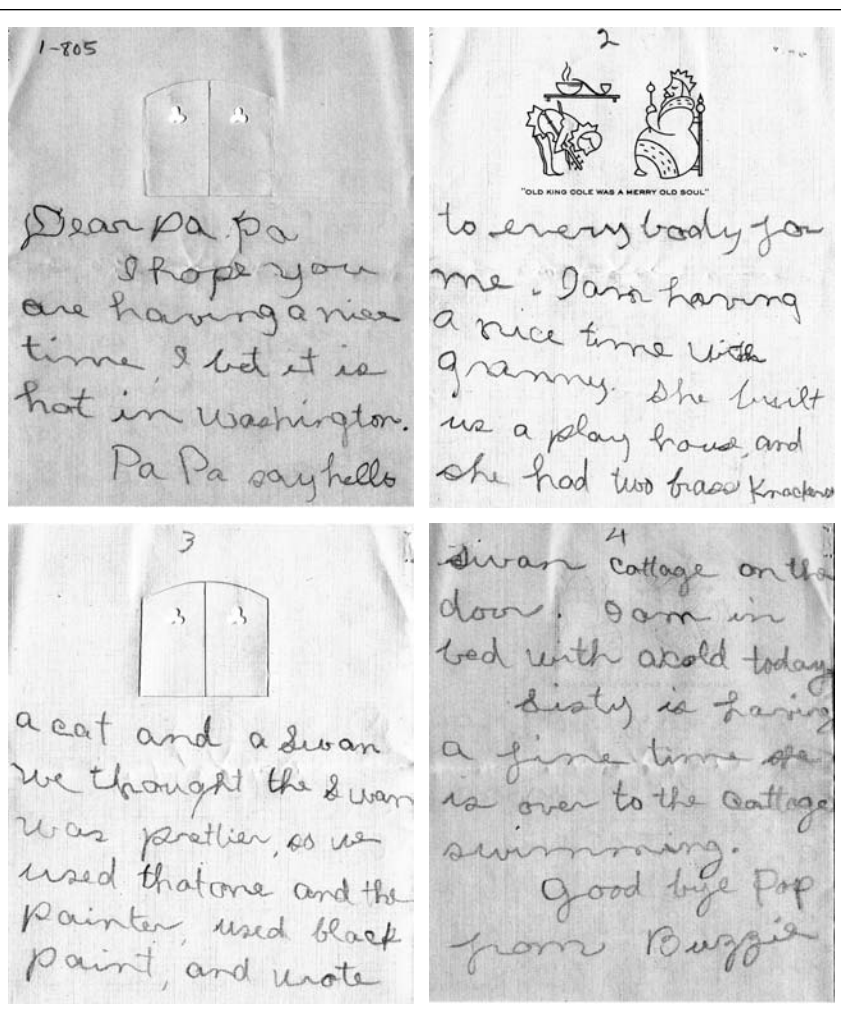 1-805
Dear Pa Pa
I hope you
are having a nice
time, I bet it is
hot in Washington.
Pa Pa say hello
2
"OLD KING COLE WAS A MERRY OLD SOUL"
to every body for
me. I am having
a nice time with
granny. She built
us a play house, and
she had two brass Knockers
3
a cat and a Swan
we thought the Swan
was prettier, so we
used that one and the
painter, used black
paint, and wrote
4
Swan Cottage on the
door. I am in
bed with a cold today
Sisty is having
a fine time
is over to the Cottage
swimming.
Good bye Pop
from Buzzie